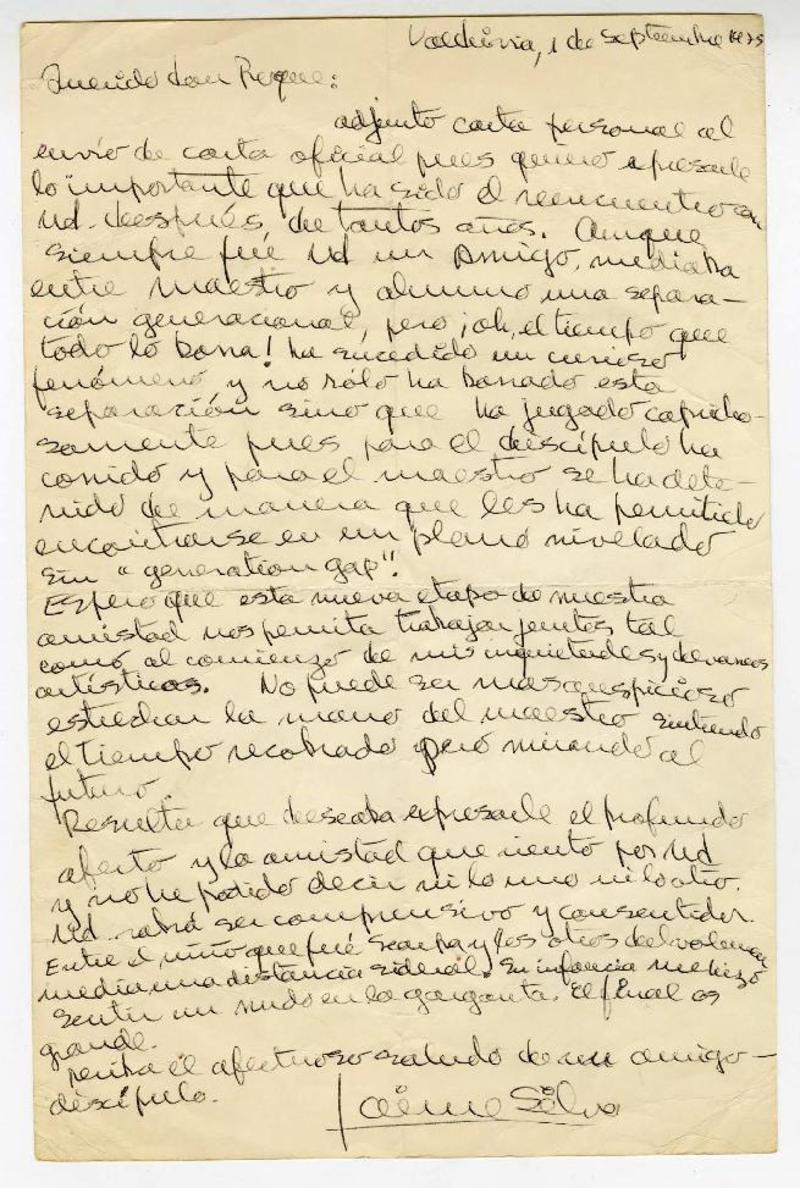 Valdivia, 1 de septiembre 1975
Querido don Roque:
adjunto carta personal al
envío de carta oficial pues quiero expresarle
lo importante que ha sido el reencuentro con
Ud. después, de tantos años. Aunque
siempre fué Ud un Amigo, mediaba
entre maestro y alumno una separa-
ción generacional, pero ¡oh, el tiempo que
todo lo borra! ha sucedido un curioso
fenómeno y no sólo ha borrado esta
separación sino que ha jugado capricho-
samente pues para el discípulo ha
corrido y para el maestro se ha dete-
nido de manera que les ha permitido
encontrarse en un plano nivelado
sin "generation gap".
Espero que esta nueva etapa de nuestra
amistad nos permita trabajar juntos tal
como al comienzo de mis inquietudes y devaneos
artísticos. No puede ser mas auspicioso
estrechar la mano del maestro sintiendo
el tiempo recobrado pero mirando al
futuro.
Resulta que deseaba expresarle el profundo
afecto y la amistad que siento por Ud
y no he podido decir ni lo uno ni lo otro.
Ud. sabrá ser comprensivo y consentidor.
Entre el niño que fué Scarpa y los otros del volumen
media una distancia sideral. Su infancia me hizo
sentir un nudo en la garganta. El final es
grande.
Reciba el afectuoso saludo de su amigo-
discípulo.
Jaime Silva